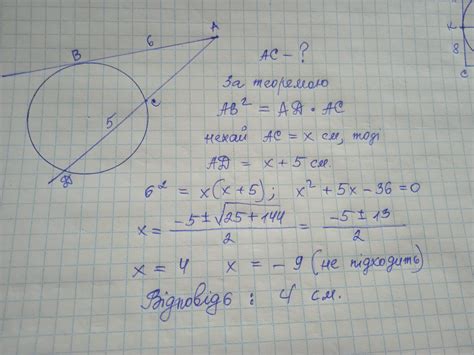 A
6
B
C
5
D
K
8
C
AC - ?
За теоремою
AB² = AD · AC
нехай AC = x см, тоді
AD = x + 5 см.
6² = x(x+5); x² + 5x - 36 = 0
x = (-5 ± √(25 + 144))/2 = (-5 ± 13)/2
x = 4 x = -9 (не підходить)
Відповідь: 4 см.